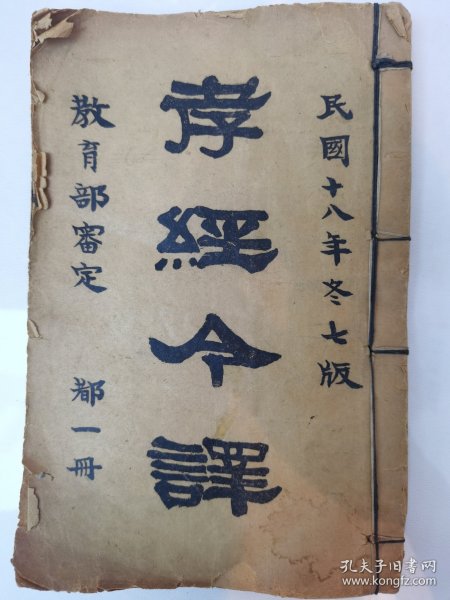 民國十八年冬七版
孝經今譯
教育部審定 都一冊
孔夫子旧书网
www.kongfz.com